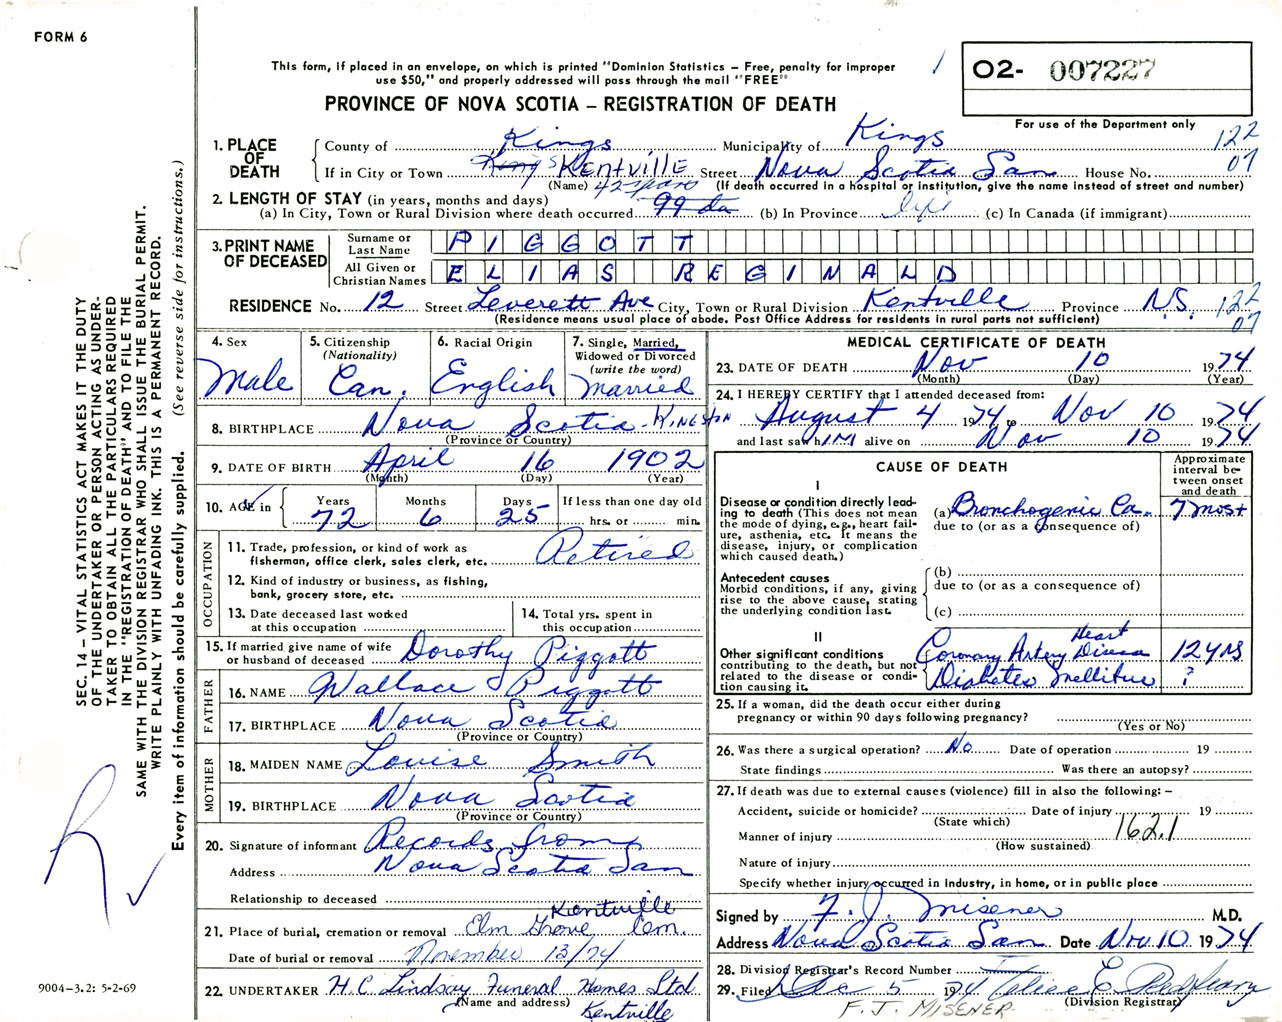 FORM 6
This form, if placed in an envelope, on which is printed "Dominion Statistics – Free, penalty for improper
use $50," and properly addressed will pass through the mail "FREE"
1
O2- 007227
PROVINCE OF NOVA SCOTIA – REGISTRATION OF DEATH
For use of the Department only
1. PLACE OF DEATH
County of Kings Municipality of Kings 122
If in City or Town Kentville Street Nova Scotia San House No. 07
(Name) (If death occurred in a hospital or institution, give the name instead of street and number)
42 years
2. LENGTH OF STAY (in years, months and days)
(a) In City, Town or Rural Division where death occurred 99 da (b) In Province life (c) In Canada (if immigrant)
3. PRINT NAME OF DECEASED
Surname or Last Name PIGGOTT
All Given or Christian Names ELIAS REGINALD
RESIDENCE No. 12 Street Leverett Ave City, Town or Rural Division Kentville Province N.S. 122
07
(Residence means usual place of abode. Post Office Address for residents in rural parts not sufficient)
4. Sex
Male
5. Citizenship
(Nationality)
Can.
6. Racial Origin
English
7. Single, Married,
Widowed or Divorced
(write the word)
Married
8. BIRTHPLACE Nova Scotia - KINGSTON
(Province or Country)
9. DATE OF BIRTH April 16 1902
(Month) (Day) (Year)
10. AGE in
Years Months Days If less than one day old
72 6 25 hrs. or min.
OCCUPATION
11. Trade, profession, or kind of work as
fisherman, office clerk, sales clerk, etc. Retired
12. Kind of industry or business, as fishing,
bank, grocery store, etc.
13. Date deceased last worked
at this occupation
14. Total yrs. spent in
this occupation
15. If married give name of wife
or husband of deceased Dorothy Piggott
FATHER
16. NAME Wallace Piggott
17. BIRTHPLACE Nova Scotia
(Province or Country)
MOTHER
18. MAIDEN NAME Louise Smith
19. BIRTHPLACE Nova Scotia
(Province or Country)
20. Signature of informant Records from
Address Nova Scotia San
Relationship to deceased
Kentville
21. Place of burial, cremation or removal Elm Grove Cem.
Date of burial or removal November 13/74
22. UNDERTAKER H.C. Lindsay Funeral Homes Ltd
(Name and address) Kentville
MEDICAL CERTIFICATE OF DEATH
23. DATE OF DEATH Nov 10 1974
(Month) (Day) (Year)
24. I HEREBY CERTIFY that I attended deceased from:
August 4 1974 to Nov 10 1974
and last saw him alive on Nov 10 1974
CAUSE OF DEATH
Approximate
interval be-
tween onset
and death
I
Disease or condition directly lead-
ing to death (This does not
mean the mode of dying, e.g., heart fail-
ure, asthenia, etc. It means the
disease, injury, or complication
which caused death.)
(a) Bronchogenic Ca. 7 mos+
due to (or as a consequence of)
Antecedent causes
Morbid conditions, if any, giving
rise to the above cause, stating
the underlying condition last.
(b)
due to (or as a consequence of)
(c)
II
Other significant conditions
contributing to the death, but not
related to the disease or condi-
tion causing it.
Heart
Coronary Artery Disease 12 yrs
Diabetes Mellitus ?
25. If a woman, did the death occur either during
pregnancy or within 90 days following pregnancy?
(Yes or No)
26. Was there a surgical operation? No Date of operation 19
State findings Was there an autopsy?
27. If death was due to external causes (violence) fill in also the following: –
Accident, suicide or homicide? Date of injury 19
(State which)
162.1
Manner of injury
(How sustained)
Nature of injury
Specify whether injury occurred in industry, in home, or in public place
Signed by F. J. Misener M.D.
Address Nova Scotia San Date Nov. 10 1974
28. Division Registrar's Record Number
29. Filed Dec 5 1974
(Division Registrar)
F. J. MISENER
SEC. 14 – VITAL STATISTICS ACT MAKES IT THE DUTY
OF THE UNDERTAKER OR PERSON ACTING AS UNDER-
TAKER TO OBTAIN ALL THE PARTICULARS REQUIRED
IN THE "REGISTRATION OF DEATH" AND TO FILE THE
SAME WITH THE DIVISION REGISTRAR WHO SHALL ISSUE THE BURIAL PERMIT.
WRITE PLAINLY WITH UNFADING INK. THIS IS A PERMANENT RECORD.
Every item of information should be carefully supplied. (See reverse side for instructions.)
R
9004-3.2: 5-2-69